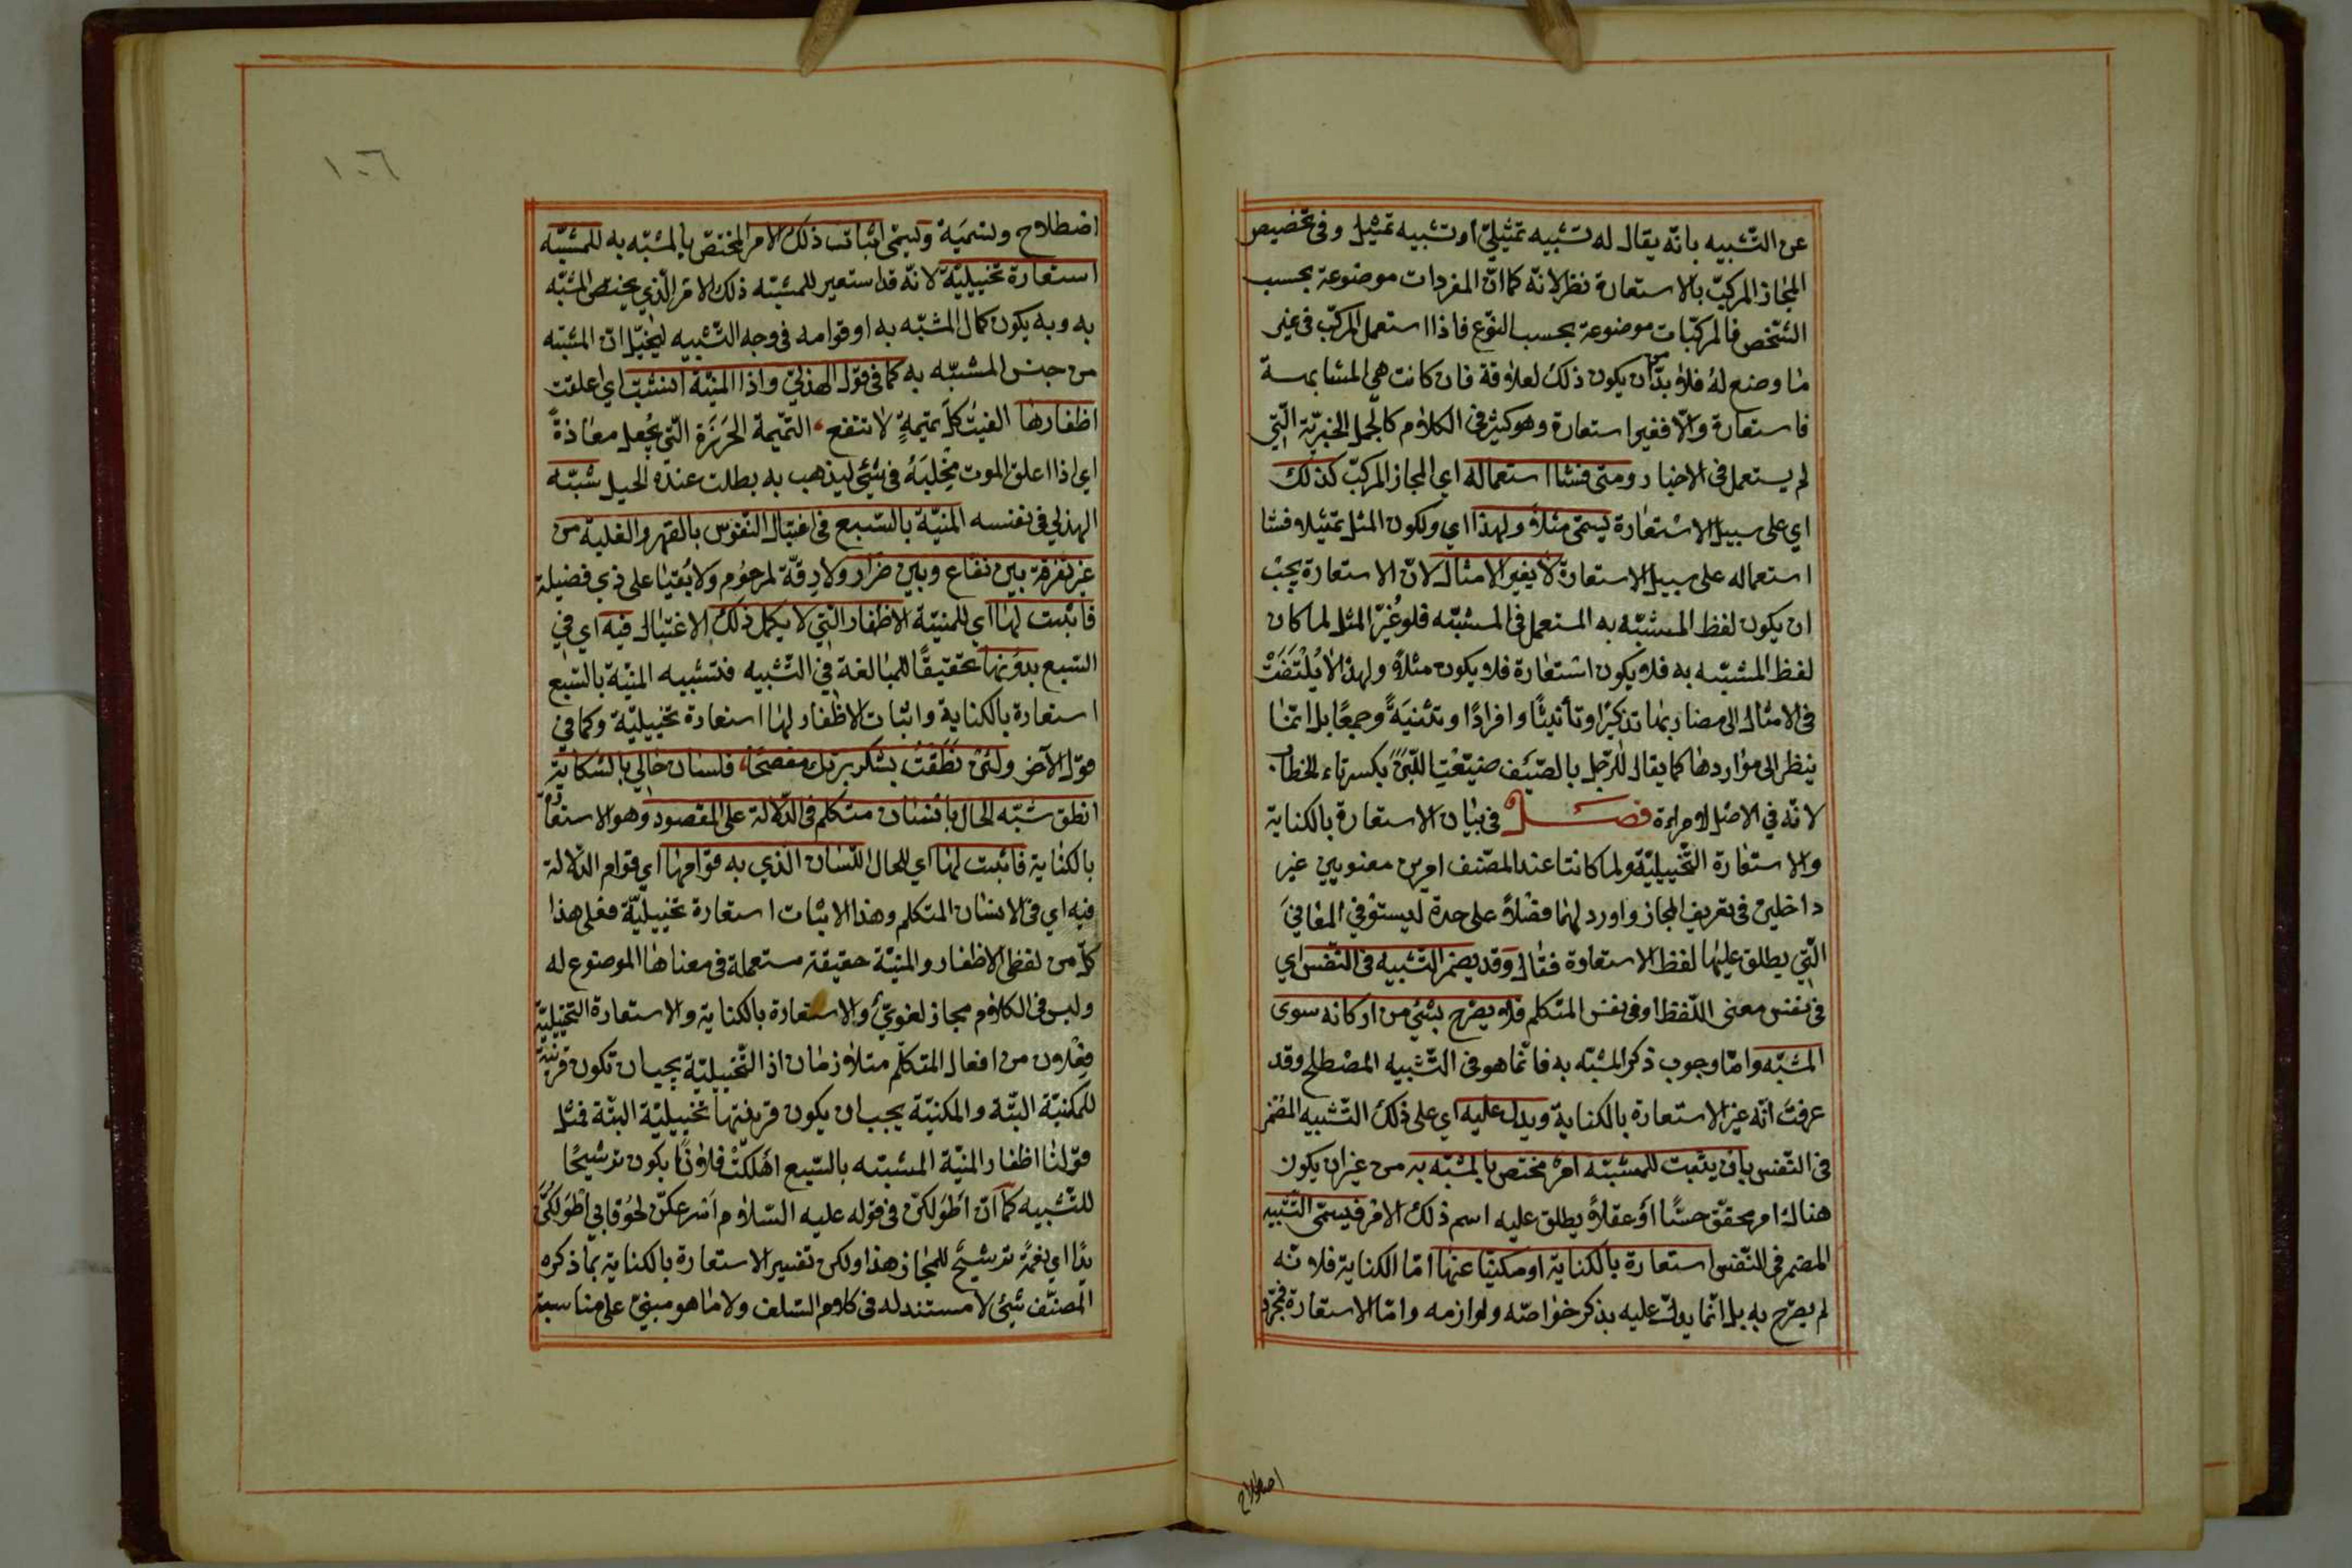 عن التّشبيه بانّه يقال له تشبيه تمثيليّ او تشبيه تمثيل وفى تخصيص
المجاز المركّب بالاستعارة نظر لانّه كما انّ المفردات موضوعة بحسب
الشّخص فالمركّبات موضوعة بحسب النّوع فاذا استعمل المركّب فى غير
ما وضع له فلا بدّ من ان يكون ذلك لعلاقة فان كانت هي المشابهة
فاستعارة والّا فغير استعارة وهو كثير فى الكلام كالجمل الخبريّة الّتي
لم يستعمل فى الاخبار ومتى فشا استعماله اي المجاز المركّب كذلك
اي على سبيل الاستعارة يسمّى مثلاً ولهذا اي ولكون المثل تمثيلا فشا
استعماله على سبيل الاستعارة لا يغير الامثال لانّ الاستعارة يجب
ان يكون لفظ المشبّه به المستعمل فى المشبّه فلو غُيّر المثل لما كان
لفظ المشبّه به فلا يكون استعارة فلا يكون مثلاً ولهذا لا يُلْتَفَتْ
فى الامثال الى مضاربها تذكيرًا وتأنيثًا وافرادًا وتثنيَةً وجمعًا بل انّما
ينظر الى مواردها كما يقال للرّجل بالصّيْف ضيّعْتِ اللّبنَ بكسر تاء الخطاب
لانّه في الاصل لامراة فصل فى بيان الاستعارة بالكناية
والاستعارة التّخييليّة ولما كانتا عند المصّنف امرين معنويين غير
داخلين فى تعريف المجاز واورد لهما فصْلاً على حدة ليستوْفي المعانيَ
الّتي يطلق عليها لفظ الاستعارة فقال وقد يضمر التّشبيه فى النّفس اي
فى نفس معنى اللّفظ او فى نفس المتكلم فلا يصرّح بشئ من اركانه سوى
المشبّه وامّا وجوب ذكر المشبّه به فانّما هو فى التّشبيه المصْطلح وقد
عرفت انّه غير الاستعارة بالكناية ويدل عليه اي على ذلك التّشبيه المضمر
فى النّفس بان يثبت للمشبّه امر مختص بالمشبّه به من غير ان يكون
هناك امر محقّق حسًّا اوْ عقلاً يطلق عليه اسم ذلك الامر فيسمّى التّشبيه
المضمر فى النّفس استعارة بالكناية او مكنيّا عنها امّا الكناية فلانّه
لم يصرّح به بل انّما يدلّ عليه بذكر خواصّه ولوازمه وامّا الاستعارة فمجرّد
اصطلاح
١٠٦
اصطلاح وتسميَة ويسمّى اثبات ذلك الامر المختصّ بالمشبّه به للمشبّه
استعارة تخييليّة لانّه قد استعير للمشبّه ذلك الامر الّذي يختصّ المشبّه
به وبه يكون كمال المشبّه به او قوامه فى وجه التّشبيه ليخيّل انّ المشبّه
من جنس المشبّه به كما فى قول الهذليّ واذا المنيّة انشبت اي اعلقت
اظفارها الفيت كلّ تميمةٍ لا تنفع، التّميمة الخَرَزة الّتي تُجعل معاذةً
اي اذا اعلق الموت مِخْلبَهُ فى شئ ليذهب به بطلت عنده الحيل شبّه
الهذلي فى نفسه المنيّة بالسّبع فى اغتيال النّفوس بالقهر والغلبة من
غير تفرقة بين نفّاع وبين ضرّار ولا رِقّة لمرحوُم ولا بُقيا على ذي فضيلة
فاثبت لها اي للمنيّة الاظفار الّتي لا يكمل ذلك الاغتيال فيه اي في
السّبع بدوُنها تحقيقًا للمبالغة في التّشبيه فتشبيه المنيّة بالسّبع
استعارة بالكناية واثبات الاظفار لها استعارة تخييليّة وكما في
قول الآخر ولئن نَطَقْتُ بشكر برّك مفصحًا، فلسان حالي بالشكاية
انطق شبّه الحال بانسان متكلّم فى الدّلالة على المقصود وهو الاستعارة
بالكناية فاثبت لها اي للحال اللّسان الّذي به قوامها اي قوام الدّلالة
فيه اي فى الانسان المتكلم وهذا الاثبات استعارة تخييليّة فعلى هذا
كلّ من لفظي الاظفار والمنيّة حقيقة مستعملة فى معناها الموضوع له
وليس فى الكلام مجاز لغويّ والاستعارة بالكناية والاستعارة التّخييليّة
فِعْلان من افعال المتكلّم متلازمان اذ التّخييليّة يجب ان تكون قرينة
للمكنيّة البتّة والمكنيّة يجب ان يكون قرينتها تخييليّة البتّة فمثل
قولنا اظفار المنيّة المشبّه بالسّبع اهْلكتْ فلانًا يكون ترشيحًا
للتّشبيه كما انّ اطْولكنّ فى قوله عليه السّلام اسْرعكنّ لحُوقا بي اطْولكُنّ
يدًا اي نعمةً ترشيحٌ للمجاز هذا ولكن تفسير الاستعارة بالكناية بما ذكره
المصنّف شئ لا مستند له فى كلام السّلف ولا ما هو مبنيّ على مناسبة